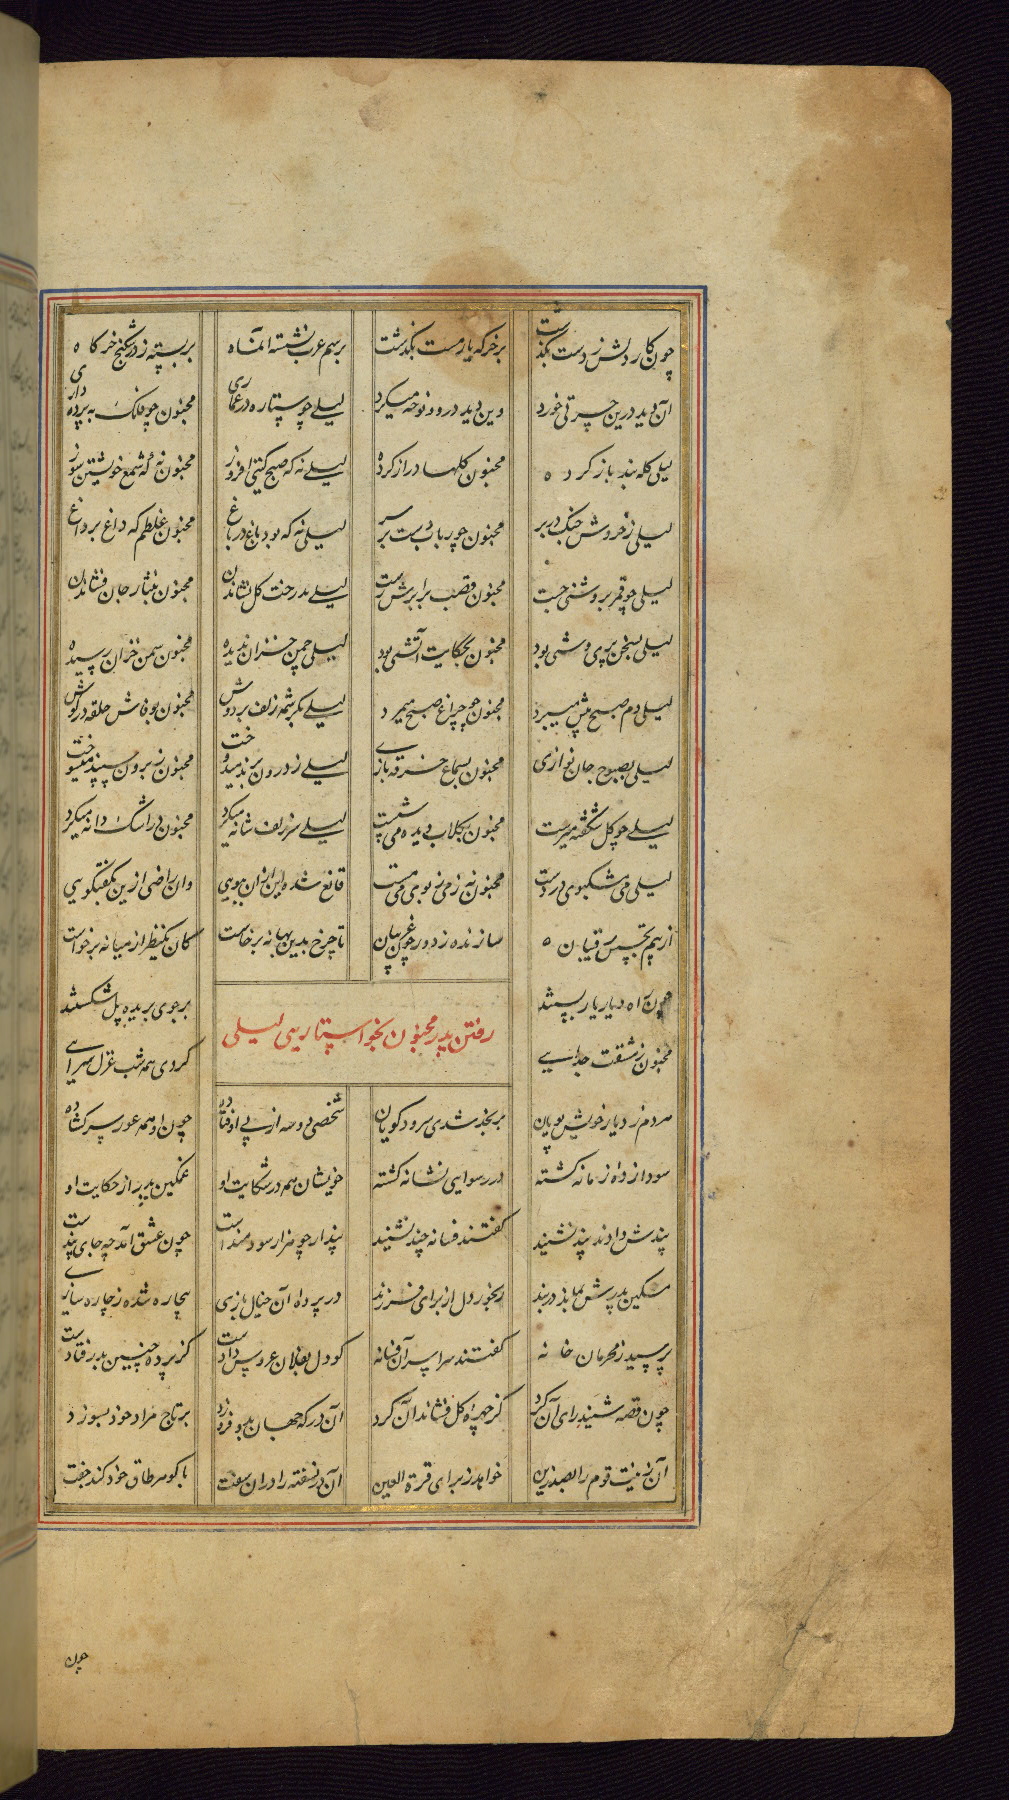 چون کار دلش ز دست بگذشت بر خرگه یار مست بگذشت برسم عرب نشسته آنماه بربسته ز در شکنج خرگاه
آن دید درین حسرتی خورد وین دید در و نوحه میکرد لیلی چو ستاره در عماری مجنون چو فلک به پرده داری
لیلی کله بند باز کرده مجنون کلها دراز کرده لیلی نه که صبح گیتی افروز مجنون نه که شمع خویشتن سوز
لیلی ز خروش چنک در بر مجنون چو رباب دست بر سر لیلی نه که بود باغ در باغ مجنون غلطم که داغ بر داغ
لیلی چو قمر بروشنی جست مجنون قصب برابرش رست لیلی بدرخت کل نشاندن مجنون بنثار جان فشاندن
لیلی بسخن پری وشی بود مجنون بحکایت آتشی بود لیلی چمن خزان ندیده مجنون سمن خزان رسیده
لیلی دم صبح پیش میبرد مجنون چو چراغ صبح میمرد لیلی بکرشمه زلف بر دوش مجنون بوفاش حلقه در گوش
لیلی بصبوح جان نوازی مجنون بسماع خرقه بازی لیلی ز درون پرند میدوخت مجنون ز برون سپند میسوخت
لیلی چو کل شکفته میرست مجنون بکلاب دیده می شست لیلی سر زلف شانه میکرد مجنون در اشک دانه میکرد
لیلی می مشکبوی در دست مجنون نه ز می ز بوی می مست قانع شده این از آن ببویی وان راضی ازین بگفتگویی
از بیم تجسس رقیبان سازنده ز دور چون غریبان تا چرخ بدین بهانه برخاست کان یکنظر از میانه برخواست
چون راه دیار یار بستند بر جوی بریده پل شکستند
رفتن پدر مجنون بخواستاری لیلی
مجنون ز مشقت جدایی کردی همه شب غزل سرایی
مردم ز دیار خویش پویان بر نجد شدی سرود گویان شخصی دو سه از پی اوفتاده چون او همه عور سر گشاده
سودا زده زمانه گشته در رسوایی نشانه گشته خویشان همه در شکایت او غمگین پدر از حکایت او
پندش دادند پند نشنید گفتند فسانه چند نشنید پند ار چه هزار سودمند است چون عشق آمد چه جای پند است
مسکین پدرش بمانده در بند رنجور دل از برای فرزند در پرده آن خیال بازی بیچاره شده ز چاره سازی
پرسید ز محرمان خانه گفتند سراسر آن فسانه کو دل بفلان عروس دادست کز پرده چنین بدر فتادست
چون قصه شنید رای آن کرد کز چهره کل فشاند آن کرد آن در که جهان بدو فروزد بر تاج مراد خود بسوزد
آن زینت قوم را بصد زین خواهد ز برای قرة العین آن در نسفته را در آن سفت با گوهر طاق خود کند جفت
چون